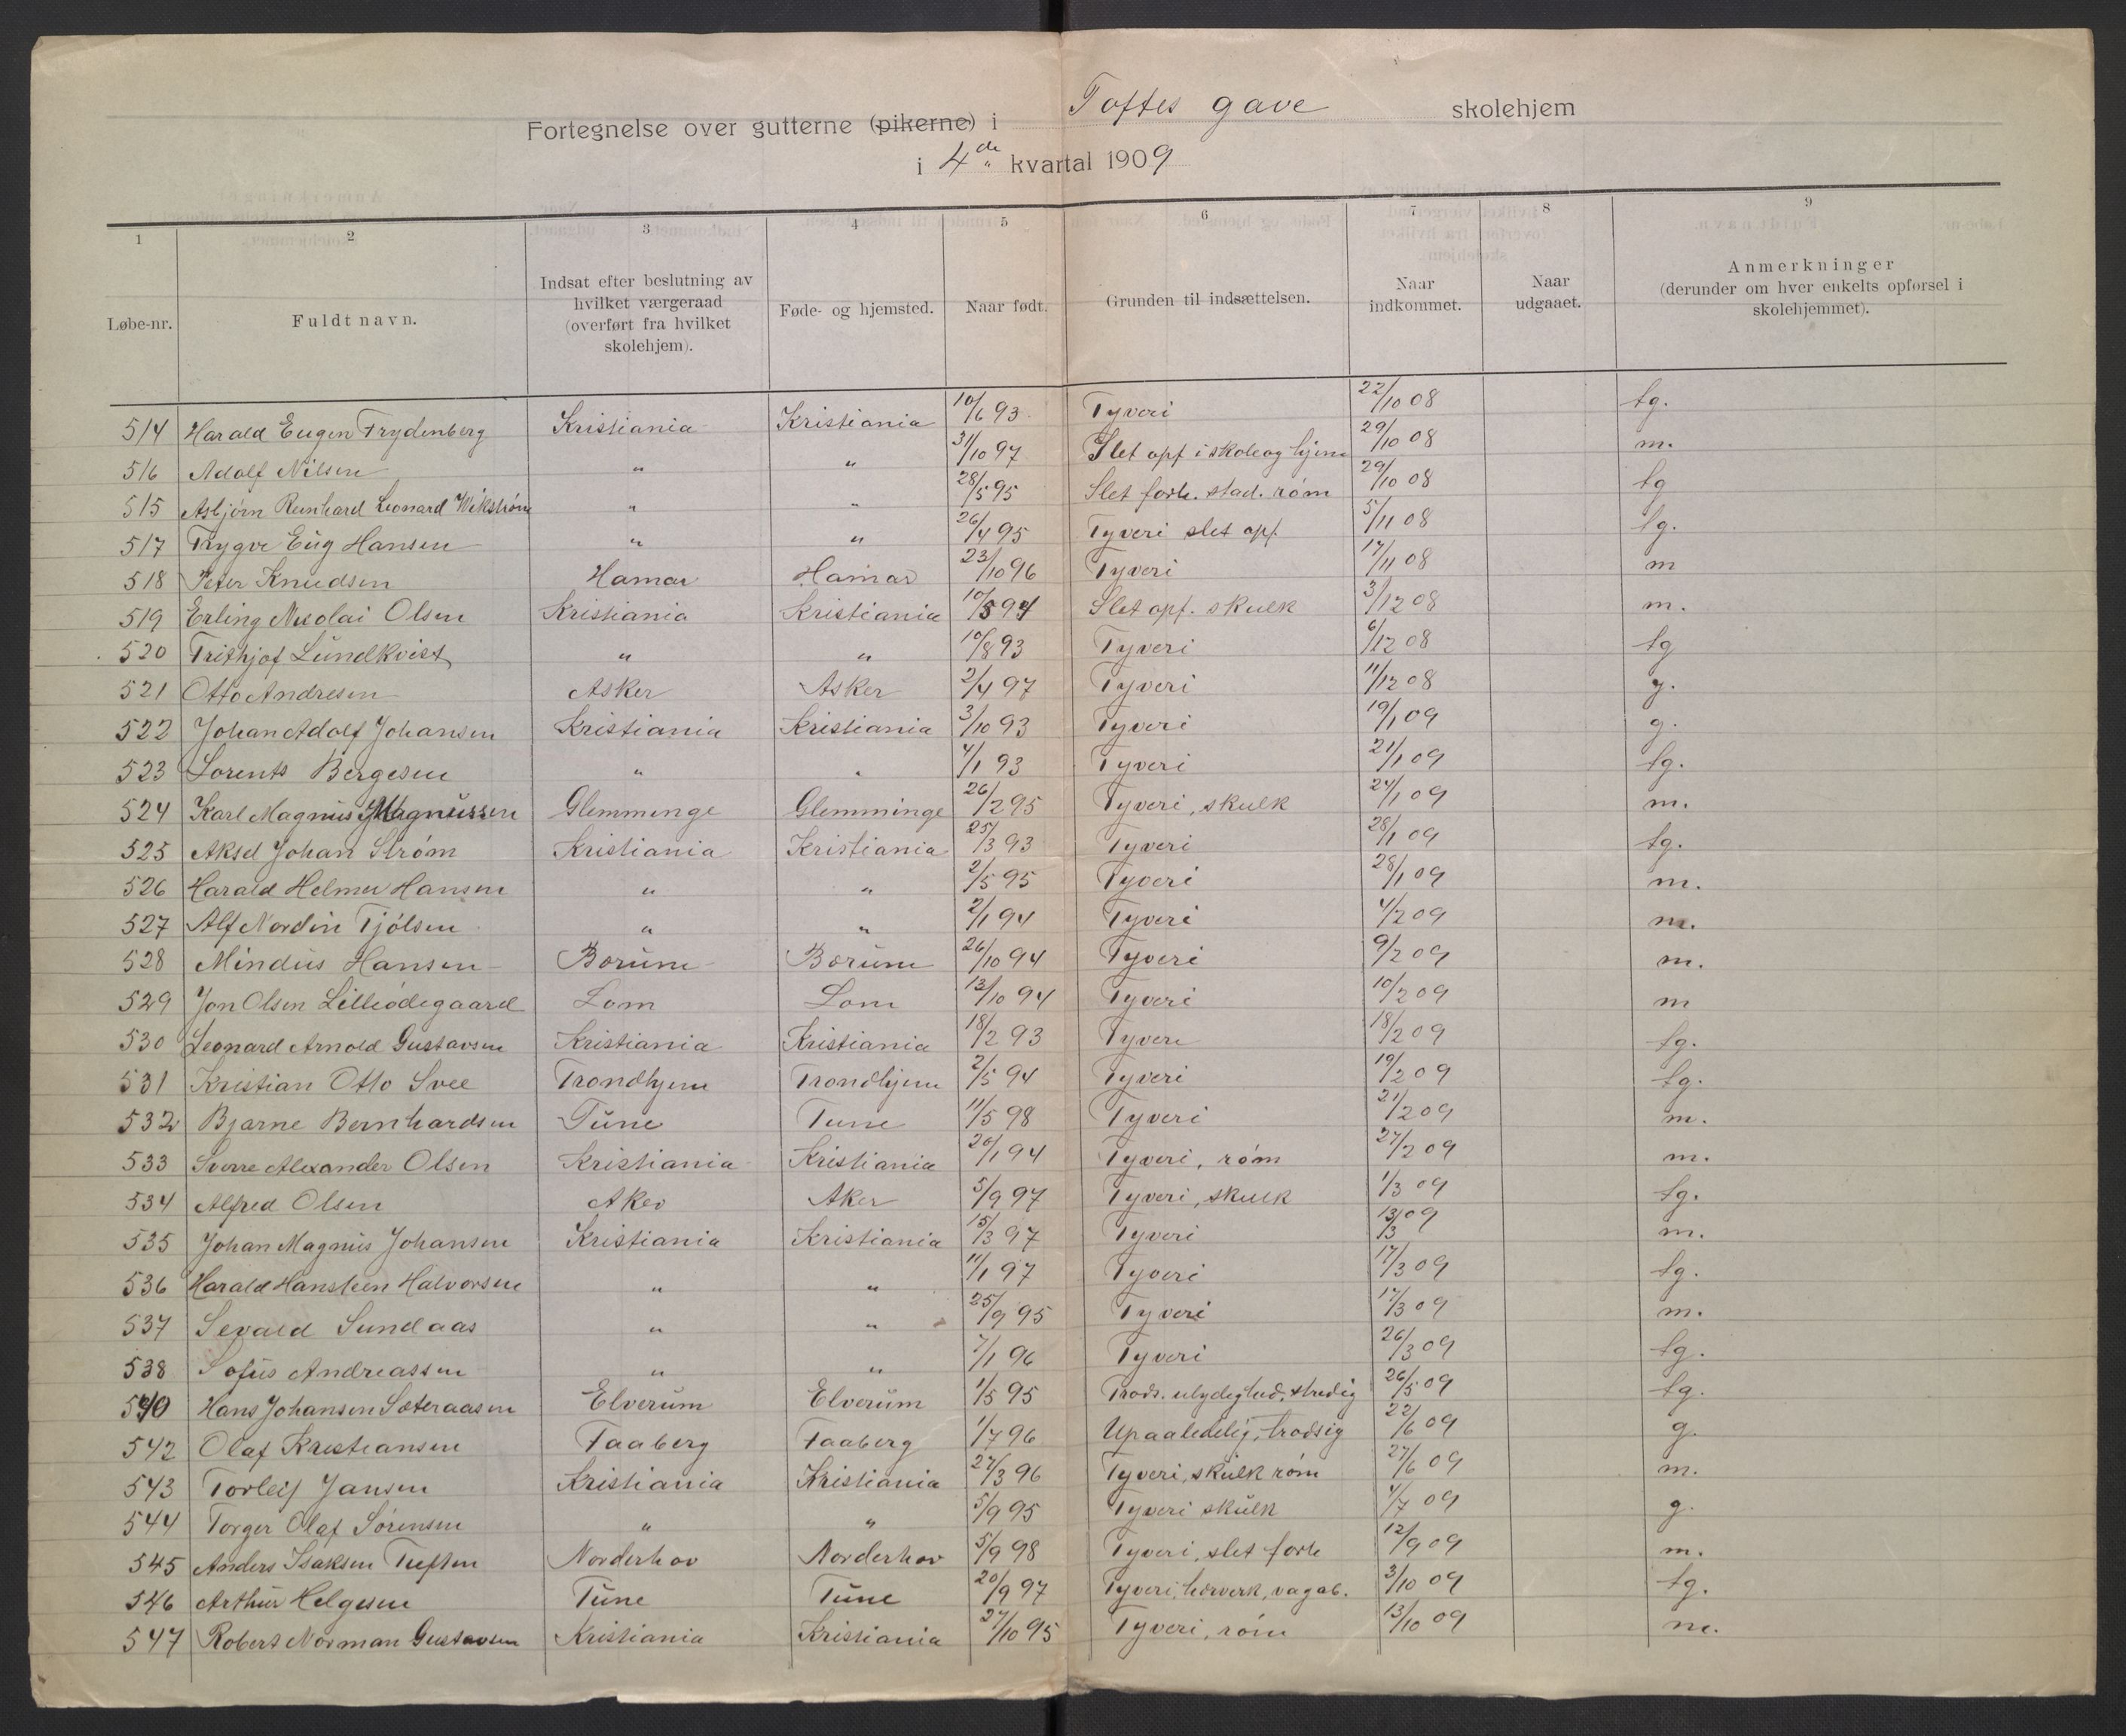 Fortegnelse over gutterne (pikerne) i Toftes gave skolehjem
i 4de kvartal 1909
1 2 3 4 5 6 7 8 9
Løbe-nr. Fuldt navn. Indsat efter beslutning av hvilket værgeraad (overført fra hvilket skolehjem). Føde- og hjemsted. Naar født. Grunden til indsættelsen. Naar indkommet. Naar udgaaet. Anmerkninger (derunder om hver enkelts opførsel i skolehjemmet).
514 Harald Eugen Frydenberg Kristiania Kristiania 10/6 93 Tyveri 22/10 08 tg.
516 Adolf Nilsen " " 31/10 97 Slet opf i skole og hjem 29/10 08 m.
515 Asbjörn Reinhard Leonard Wikström " " 28/5 95 Slet forh. stad. röm 29/10 08 tg
517 Trygve Eug Hansen " " 26/4 95 Tyveri slet opf. 5/11 08 tg.
518 Peter Knudsen Hamar Hamar 23/10 96 Tyveri 17/11 08 m
519 Erling Nicolai Olsen Kristiania Kristiania 10/5 94 Slet opf. skulk 3/12 08 m.
520 Frithjof Lundkvist " " 10/8 93 Tyveri 6/12 08 tg
521 Otto Andresen Asker Asker 2/4 97 Tyveri 11/12 08 g.
522 Johan Adolf Johansen Kristiania Kristiania 3/10 93 Tyveri 19/1 09 g.
523 Lorents Bergesen " " 4/1 93 Tyveri 21/1 09 tg.
524 Karl Magnus Magnussen Glemminge Glemminge 26/2 95 Tyveri, skulk 24/1 09 m.
525 Aksel Johan Ström Kristiania Kristiania 25/3 93 Tyveri 28/1 09 tg.
526 Harald Helmer Hansen " " 2/5 95 Tyveri 28/1 09 m.
527 Alf Nordin Tjölsen " " 2/1 94 Tyveri 4/2 09 m.
528 Mindus Hansen Bærum Bærum 26/10 94 Tyveri 9/2 09 m.
529 Jon Olsen Lilleödegaard Lom Lom 13/10 94 Tyveri 10/2 09 m
530 Leonard Arnold Gustavsen Kristiania Kristiania 18/2 93 Tyveri 18/2 09 tg.
531 Kristian Otto Svee Trondhjem Trondhjem 2/5 94 Tyveri 19/2 09 tg.
532 Bjarne Bernhardsen Tune Tune 11/5 98 Tyveri 21/2 09 m.
533 Sverre Alexander Olsen Kristiania Kristiania 20/1 94 Tyveri, röm 27/2 09 m.
534 Alfred Olsen Aker Aker 5/9 97 Tyveri, skulk 1/3 09 tg.
535 Johan Magnus Johansen Kristiania Kristiania 15/3 97 Tyveri 13/3 09 m.
536 Harald Hansteen Halvorsen " " 11/1 97 Tyveri 17/3 09 tg.
537 Sevald Sundaas " " 25/9 95 Tyveri 17/3 09 m.
538 Sofus Andreassen " " 7/1 96 Tyveri 26/3 09 tg.
540 Hans Johansen Sæteraasen Elverum Elverum 1/5 95 Trods. ulydighed, stridig 26/5 09 tg.
542 Olaf Kristiansen Faaberg Faaberg 1/7 96 Upaalidelig, trodsig 22/6 09 g.
543 Torleif Jansen Kristiania Kristiania 27/3 96 Tyveri, skulk röm 27/6 09 m.
544 Torger Olaf Sörensen " " 5/9 95 Tyveri skulk 4/7 09 g.
545 Anders Isaksen Tuften Norderhov Norderhov 5/9 98 Tyveri, slet forh 12/9 09 m.
546 Arthur Helgesen Tune Tune 20/9 97 Tyveri, hærverk, vagab. 3/10 09 tg.
547 Robert Norman Gustavsen Kristiania Kristiania 27/10 95 Tyveri, röm 13/10 09 m.